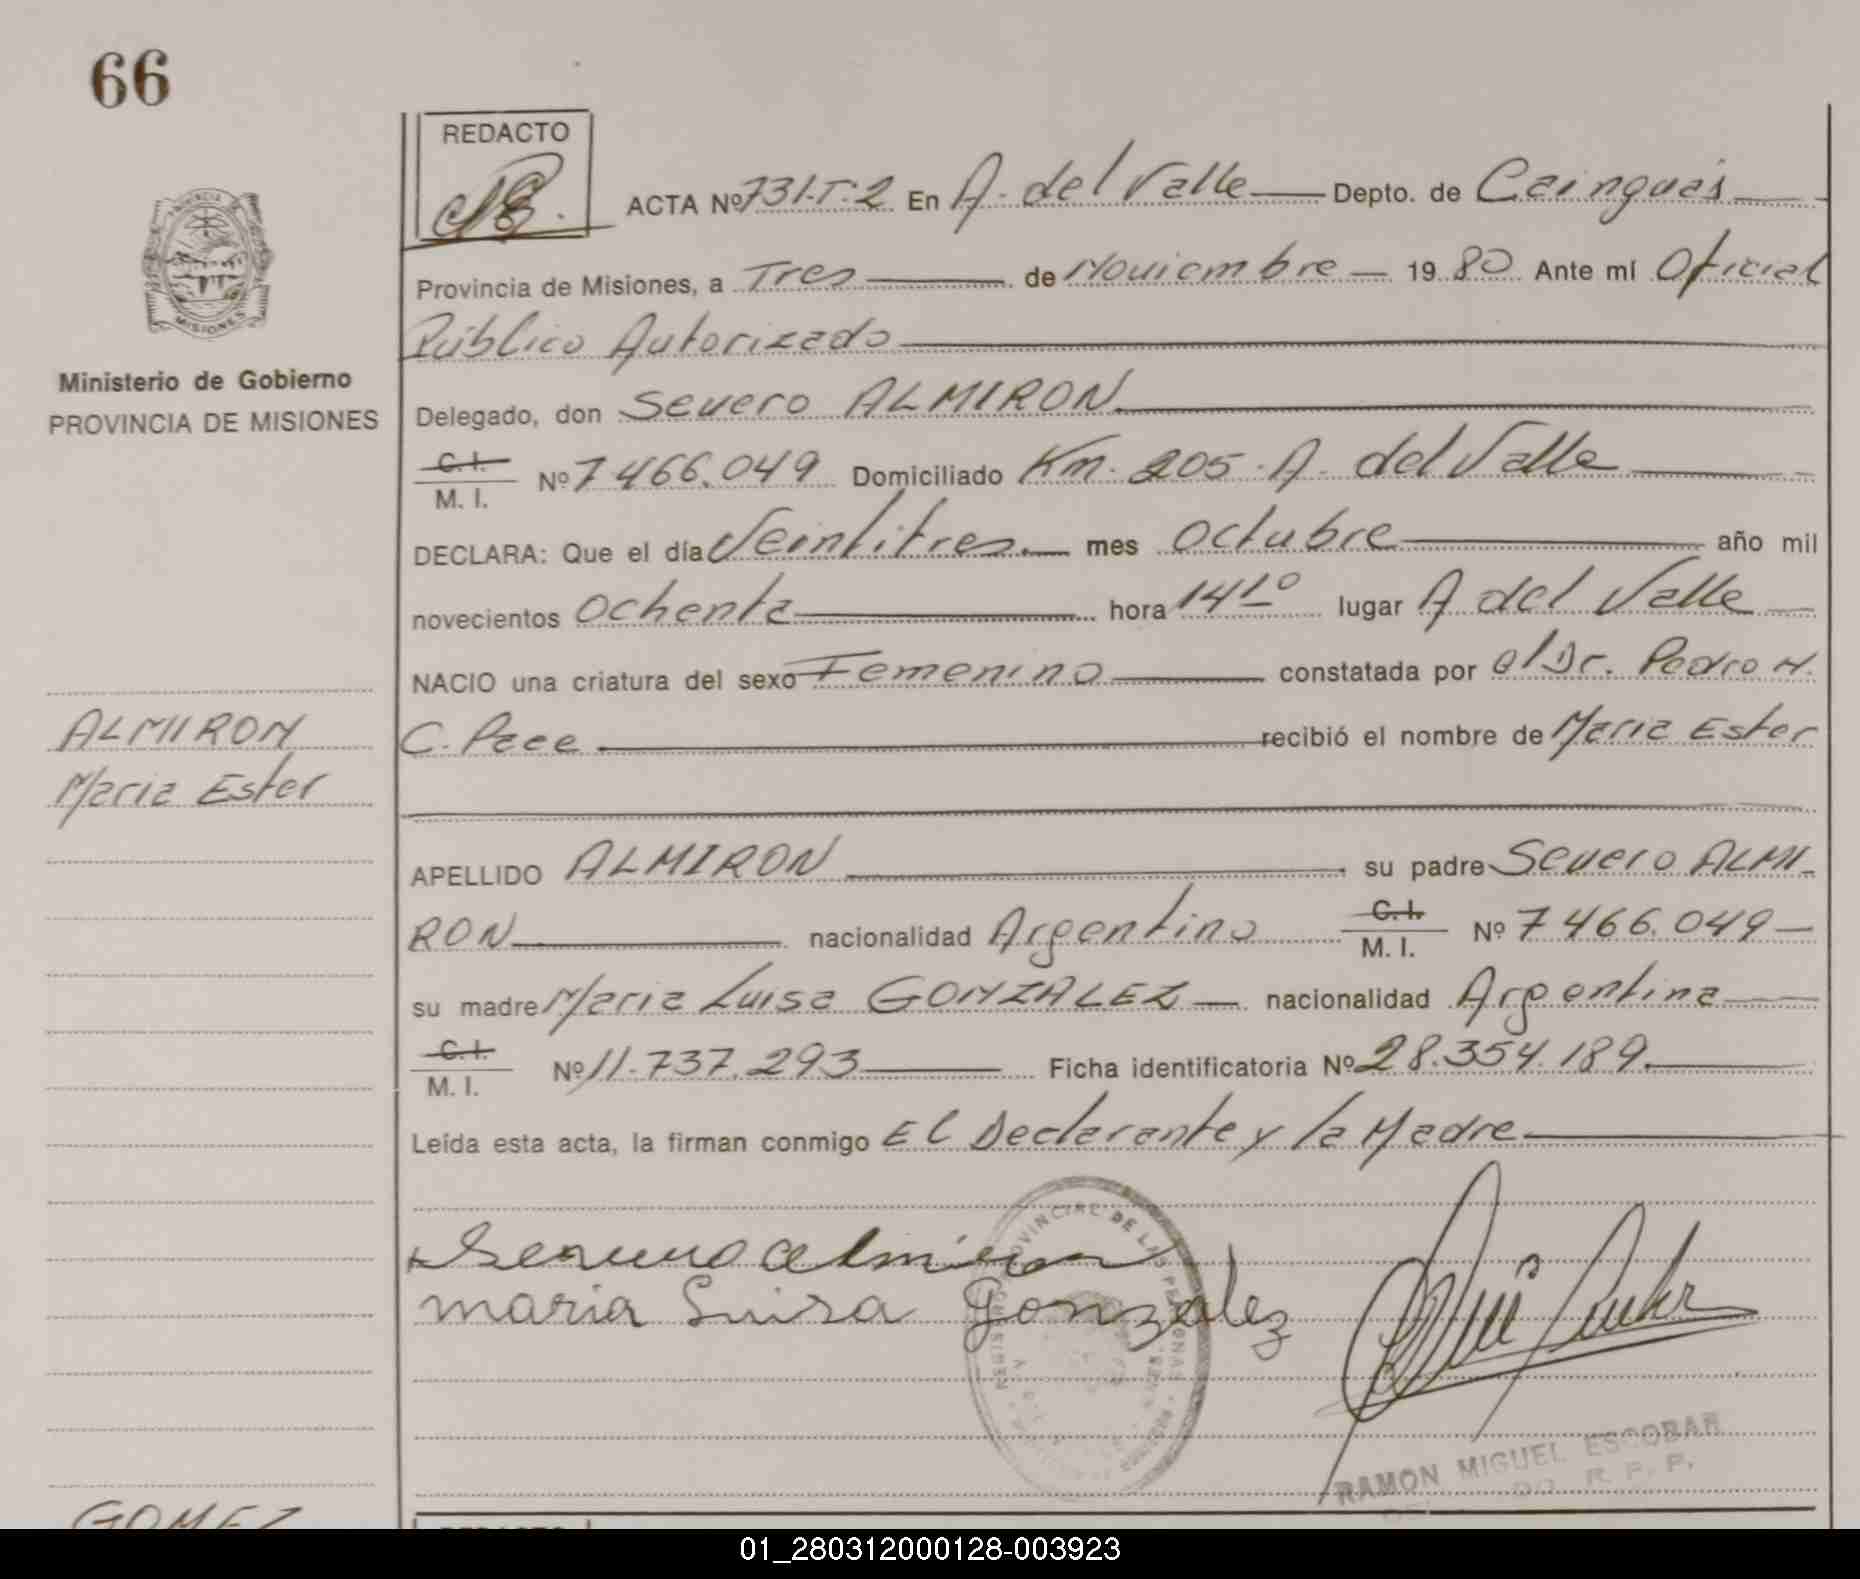 66
REDACTO
ACTA Nº 731-T:2 En A. del Valle Depto. de Cainguás
Provincia de Misiones, a Tres de Noviembre 1980 Ante mí Oficial
Público Autorizado
Ministerio de Gobierno
PROVINCIA DE MISIONES
Delegado, don Severo ALMIRON
C.I.
M. I. Nº 7466.049 Domiciliado Km. 205. A. del Valle
DECLARA: Que el día Veintitres mes Octubre año mil
novecientos Ochenta hora 14 1º lugar A del Valle
NACIO una criatura del sexo Femenino constatada por el Dr. Pedro H.
ALMIRON
C. Pace recibió el nombre de Maria Ester
Maria Ester
APELLIDO ALMIRON su padre Severo ALMI-
RON nacionalidad Argentino C.I. M. I. Nº 7466.049
su madre Maria Luisa GONZALEZ nacionalidad Argentina
C.I.
M. I. Nº 11.737.293 Ficha identificatoria Nº 28.354.189
Leída esta acta, la firman conmigo El Declarante y la Madre
Severo almiron
maria Luisa Gonzalez
REGISTRO PROVINCIAL DE LAS PERSONAS
RAMON MIGUEL ESCOBAR
R. P. P.
GOMEZ
REDACTO
01_280312000128-003923